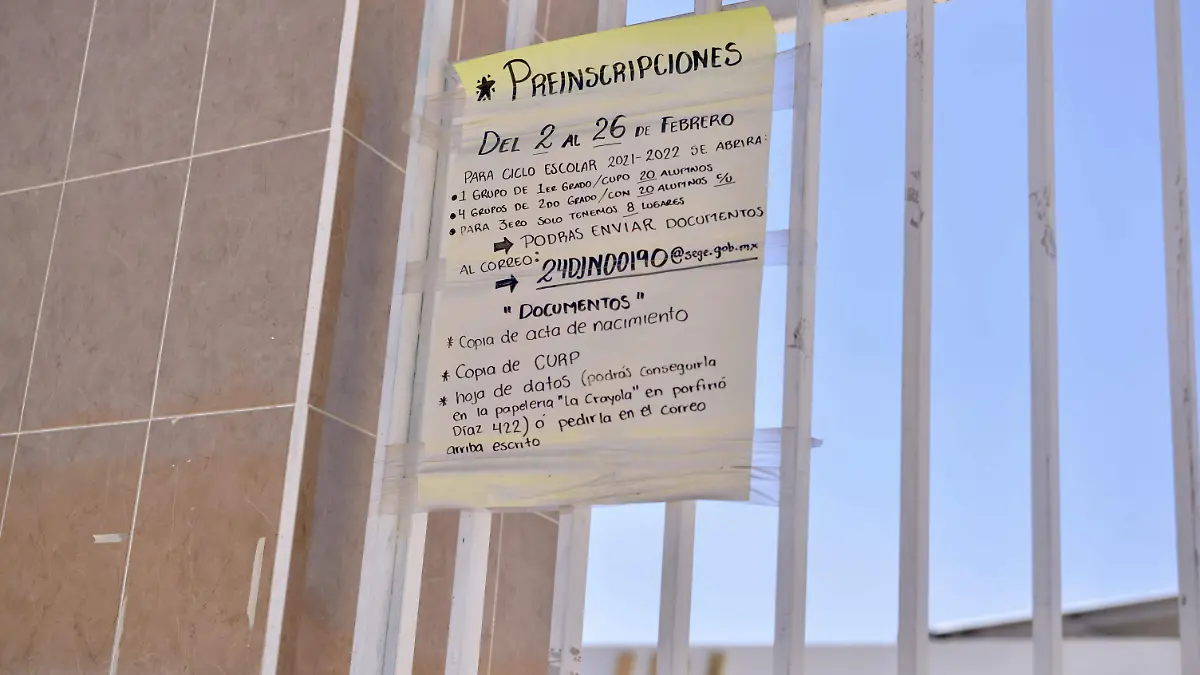 * PREINSCRIPCIONES
DEL 2 AL 26 DE FEBRERO
PARA CICLO ESCOLAR 2021-2022 SE ABRIRA:
• 1 GRUPO DE 1ER GRADO/CUPO 20 ALUMNOS
• 4 GRUPOS DE 2DO GRADO/CON 20 ALUMNOS c/u
• PARA 3ERO SOLO TENEMOS 8 LUGARES
➡ PODRAS ENVIAR DOCUMENTOS
AL CORREO:
➡ 24DJN0019O@sege.gob.mx
"DOCUMENTOS"
* Copia de acta de nacimiento
* Copia de CURP
* hoja de datos (podrás conseguirla
en la papeleria "La Crayola" en porfirió
Díaz 422) ó pedirla en el correo
arriba escrito